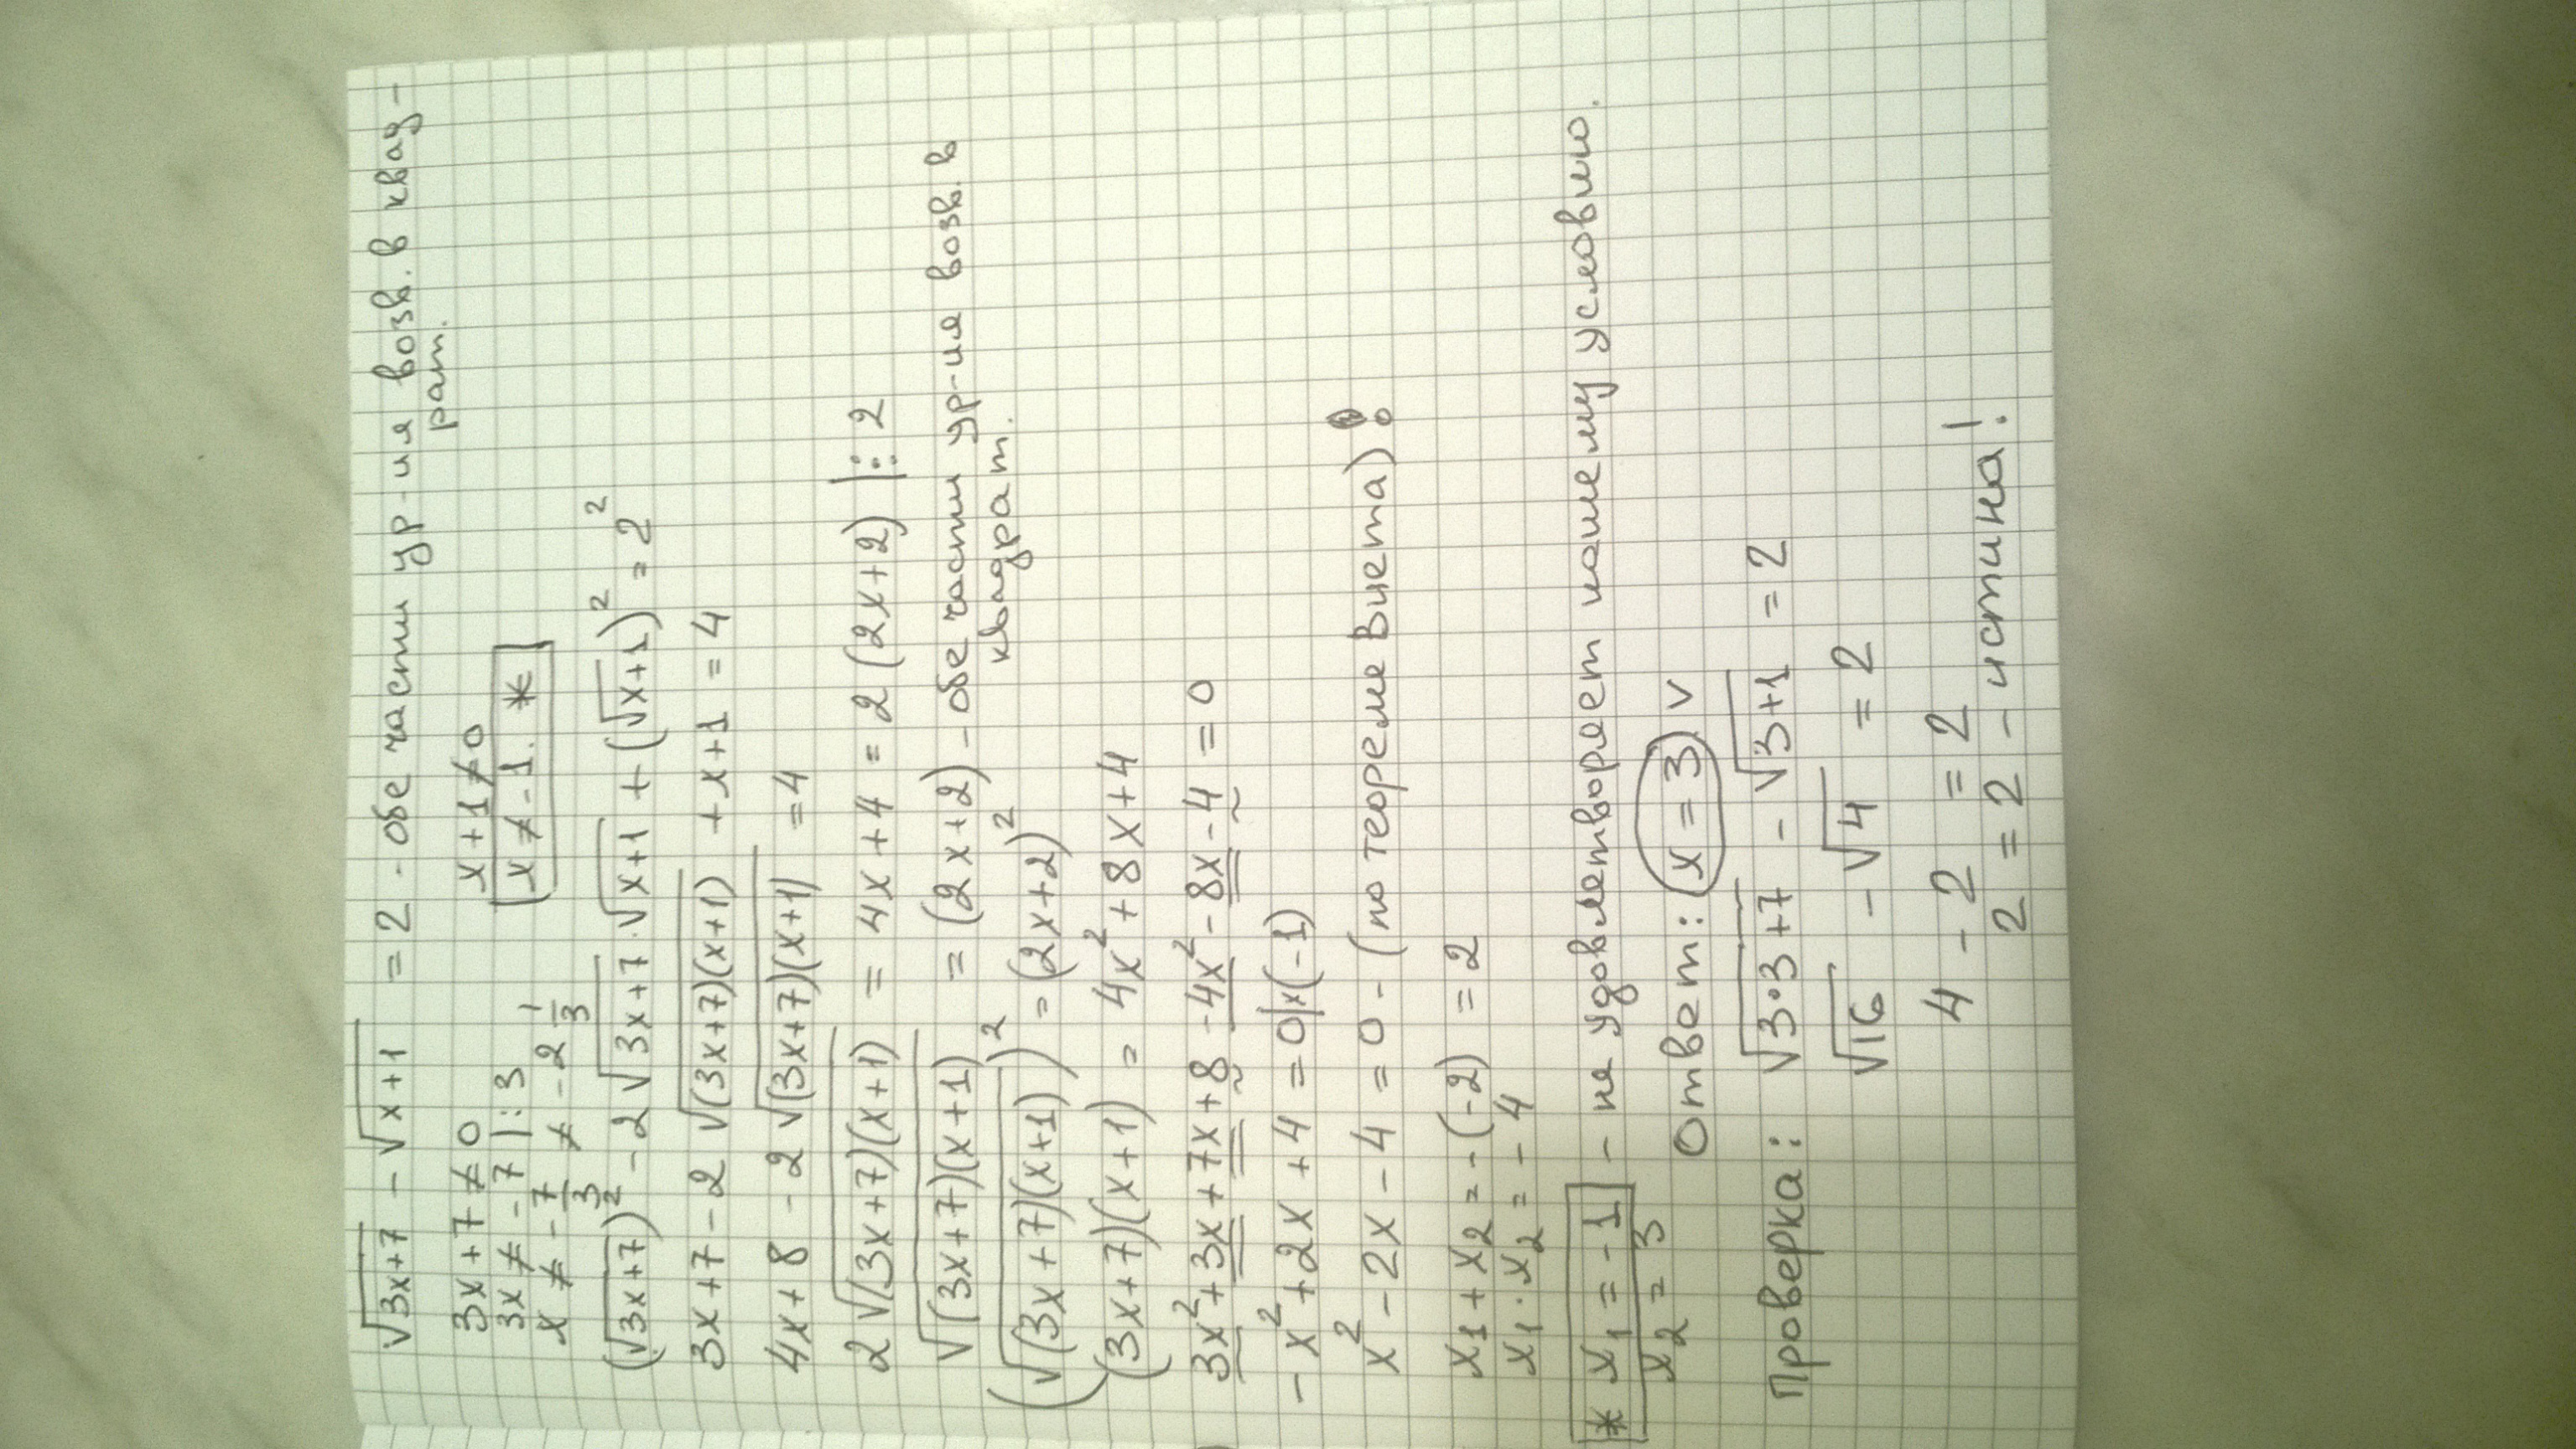 √(3x+7) - √(x+1) = 2 - обе части ур-ия возв. в квад-
рат.
3x+7≠0 x+1≠0
3x≠-7 |:3 x≠-1. *
x≠-7/3 ≠ -2 1/3
(√(3x+7))² - 2√(3x+7)·√(x+1) + (√(x+1))² = 2²
3x+7-2√((3x+7)(x+1)) + x+1 = 4
4x+8 - 2√((3x+7)(x+1)) = 4
2√((3x+7)(x+1)) = 4x+4 = 2(2x+2) |:2
√((3x+7)(x+1)) = (2x+2) - обе части ур-ия возв. в
квадрат.
(√((3x+7)(x+1)))² = (2x+2)²
(3x+7)(x+1) = 4x²+8x+4
3x²+3x+7x+8-4x²-8x-4=0
-x²+2x+4=0|x(-1)
x²-2x-4=0 - (по теореме Виета)
x₁+x₂=-(-2)=2
x₁·x₂=-4
* x₁=-1 - не удовлетворяет нашему условию.
x₂=3 Ответ: x=3 v
Проверка: √(3·3+7) - √(3+1) = 2
√16 - √4 = 2
4 - 2 = 2
2 = 2 - истина!